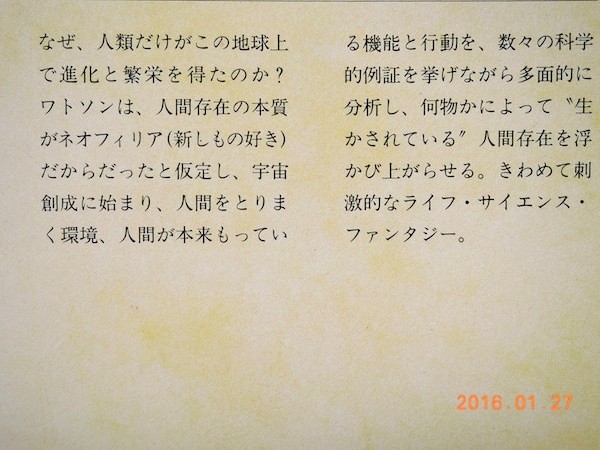 なぜ、人類だけがこの地球上
で進化と繁栄を得たのか?
ワトソンは、人間存在の本質
がネオフィリア(新しもの好き)
だからだったと仮定し、宇宙
創成に始まり、人間をとりま
く環境、人間が本来もってい
る機能と行動を、数々の科学
的例証を挙げながら多面的に
分析し、何物かによって〝生
かされている〟人間存在を浮
かび上がらせる。きわめて刺
激的なライフ・サイエンス・
ファンタジー。
2016.01.27